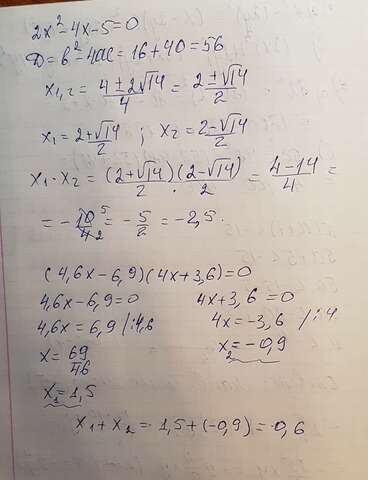 2x² - 4x - 5 = 0
D = b² - 4ac = 16 + 40 = 56
x₁,₂ = (4 ± 2√14)/4 = (2 ± √14)/2
x₁ = (2+√14)/2 ; x₂ = (2-√14)/2
x₁ · x₂ = (2+√14)/2 · (2-√14)/2 = (4-14)/4 =
= - 10⁵/4₂ = - 5/2 = -2,5.
(4,6x - 6,9)(4x + 3,6) = 0
4,6x - 6,9 = 0 4x + 3,6 = 0
4,6x = 6,9 /:4,6 4x = -3,6 /:4
x = 69/46 x₂ = -0,9
x₁ = 1,5
x₁ + x₂ = 1,5 + (-0,9) = 0,6